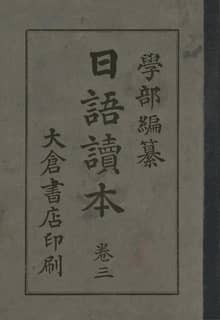 學部編纂
日語讀本
卷三
大倉書店印刷